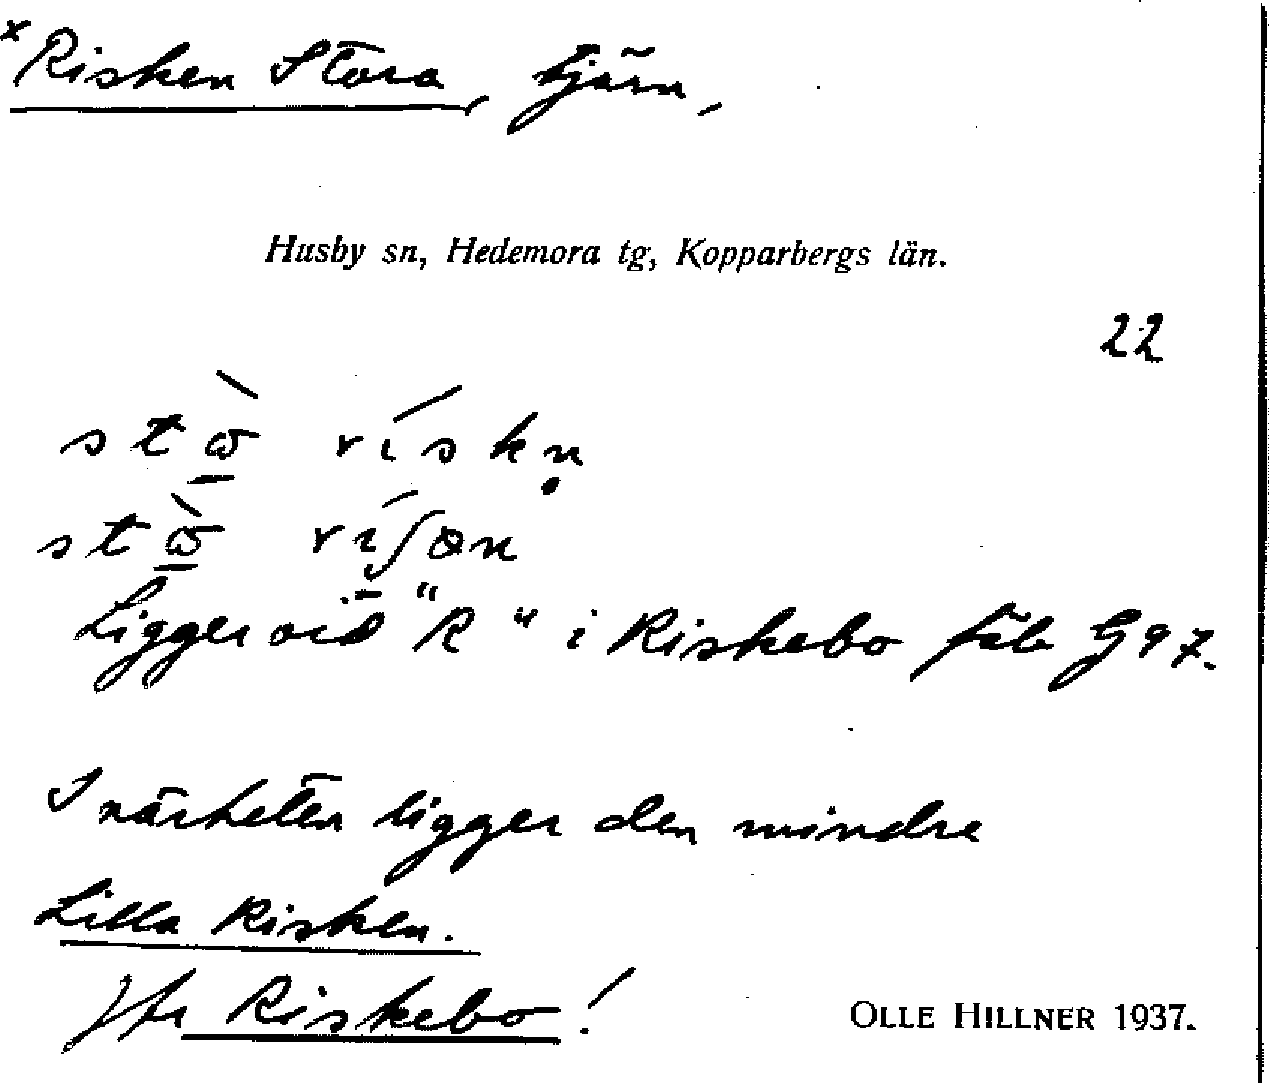 ×Risken Stora, tjärn,
Husby sn, Hedemora tg, Kopparbergs län.
22
stὼ̠ rískn̥
stὼ̠ ríʃən
Ligger vid "R" i Riskebo fäb G97.
I närheten ligger den mindre
Lilla Risken.
Jfr Riskebo!
OLLE HILLNER 1937.